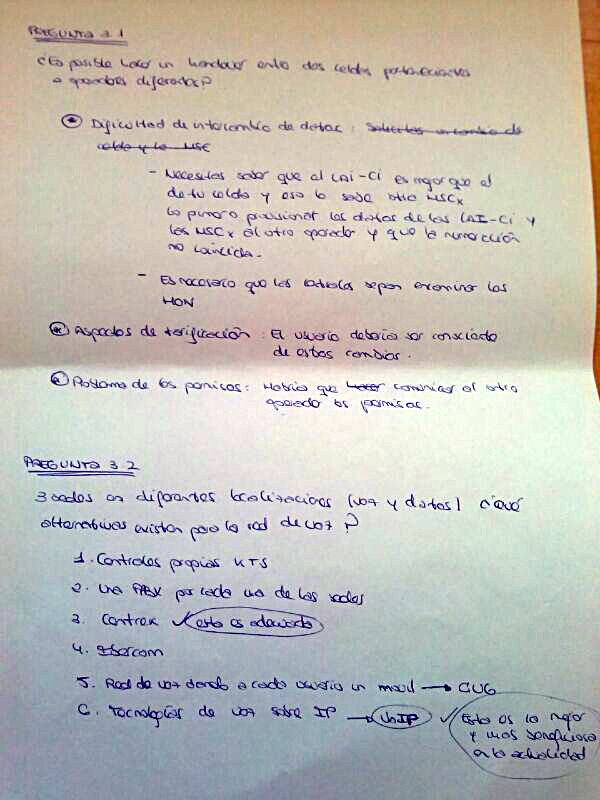 PREGUNTA 3.1
¿Es posible hacer un handover entre dos celdas pertenecientes
a operadores diferentes?
Dificultad de intercambio de datos: Solicitar un cambio de
celda y la MSC
- Necesitas saber que el LAI-CI es mejor que el
de tu celda y eso lo sabe otra MSCx
Lo primero provisionar los datos de los LAI-CI y
los MSCx al otro operador y que la numeración
no coincida.
- Es necesario que las celdas sepan examinar los
HON
Aspectos de tarificación: El usuario debería ser consciente
de estos cambios.
Problema de los permisos: Habría que hacer comunicar al otro
operador los permisos.
PREGUNTA 3.2
3 sedes en diferentes localizaciones (voz y datos) ¿Qué
alternativas existen para la red de voz?
1. Centrales propias KTS
2. Una PABX por cada una de las sedes
3. Centrex ✓ esta es adecuada
4. Ibercom
5. Red de voz dando a cada usuario un movil → CUG
6. Tecnologías de voz sobre IP → VoIP ✓ Esta es la mejor
y más beneficiosa
en la actualidad